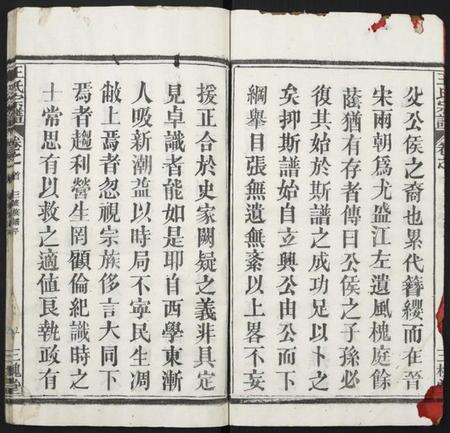 父公侯之裔也累代簪纓而在晉
宋兩朝爲尤盛江左遺風槐庭餘
蔭猶有存者傳曰公侯之子孫必
復其始於斯譜之成功足以卜之
矣抑斯譜始自立興公由公而下
綱舉目張無遺無紊以上畧不妄
援正合於史家闕疑之義非具定
見卓識者能如是耶自西學東漸
人吸新潮益以時局不寧民生凋
敝上焉者忽視宗族侈言大同下
焉者趨利營生罔顧倫紀識時之
士常思有以救之適値民執政有
王氏宗譜
卷之
首
三槐堂